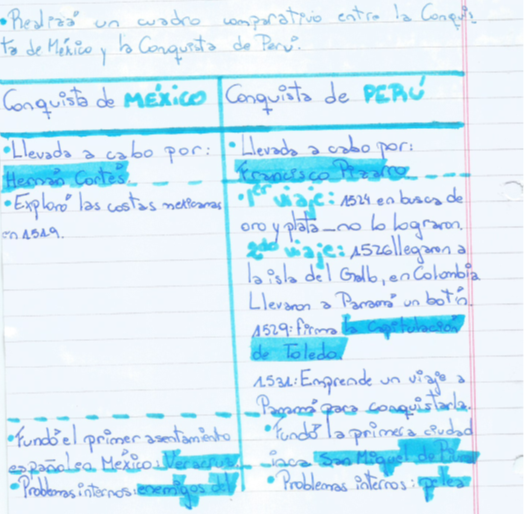 •Realizá un cuadro comparativo entre la Conquis
ta de México y la Conquista de Perú.
Conquista de MÉXICO
•Llevada a cabo por:
Hernán Cortés.
•Exploró las costas mexicanas
en 1519.
•Fundó el primer asentamiento
español en México: Veracruz.
•Problemas internos: enemigos del
Conquista de PERÚ
•Llevada a cabo por:
Francisco Pizarro
•1er viaje: 1524 en busca de
oro y plata_no lo lograron.
2do viaje: 1526 llegaron a
la isla del Gallo, en Colombia
Llevaron a Panamá un botín.
1529: firma la Capitulación
de Toledo.
1531: Emprende un viaje a
Panamá para conquistarla.
•Fundó la primera ciudad
inca San Miguel de
•Problemas internos: pelea